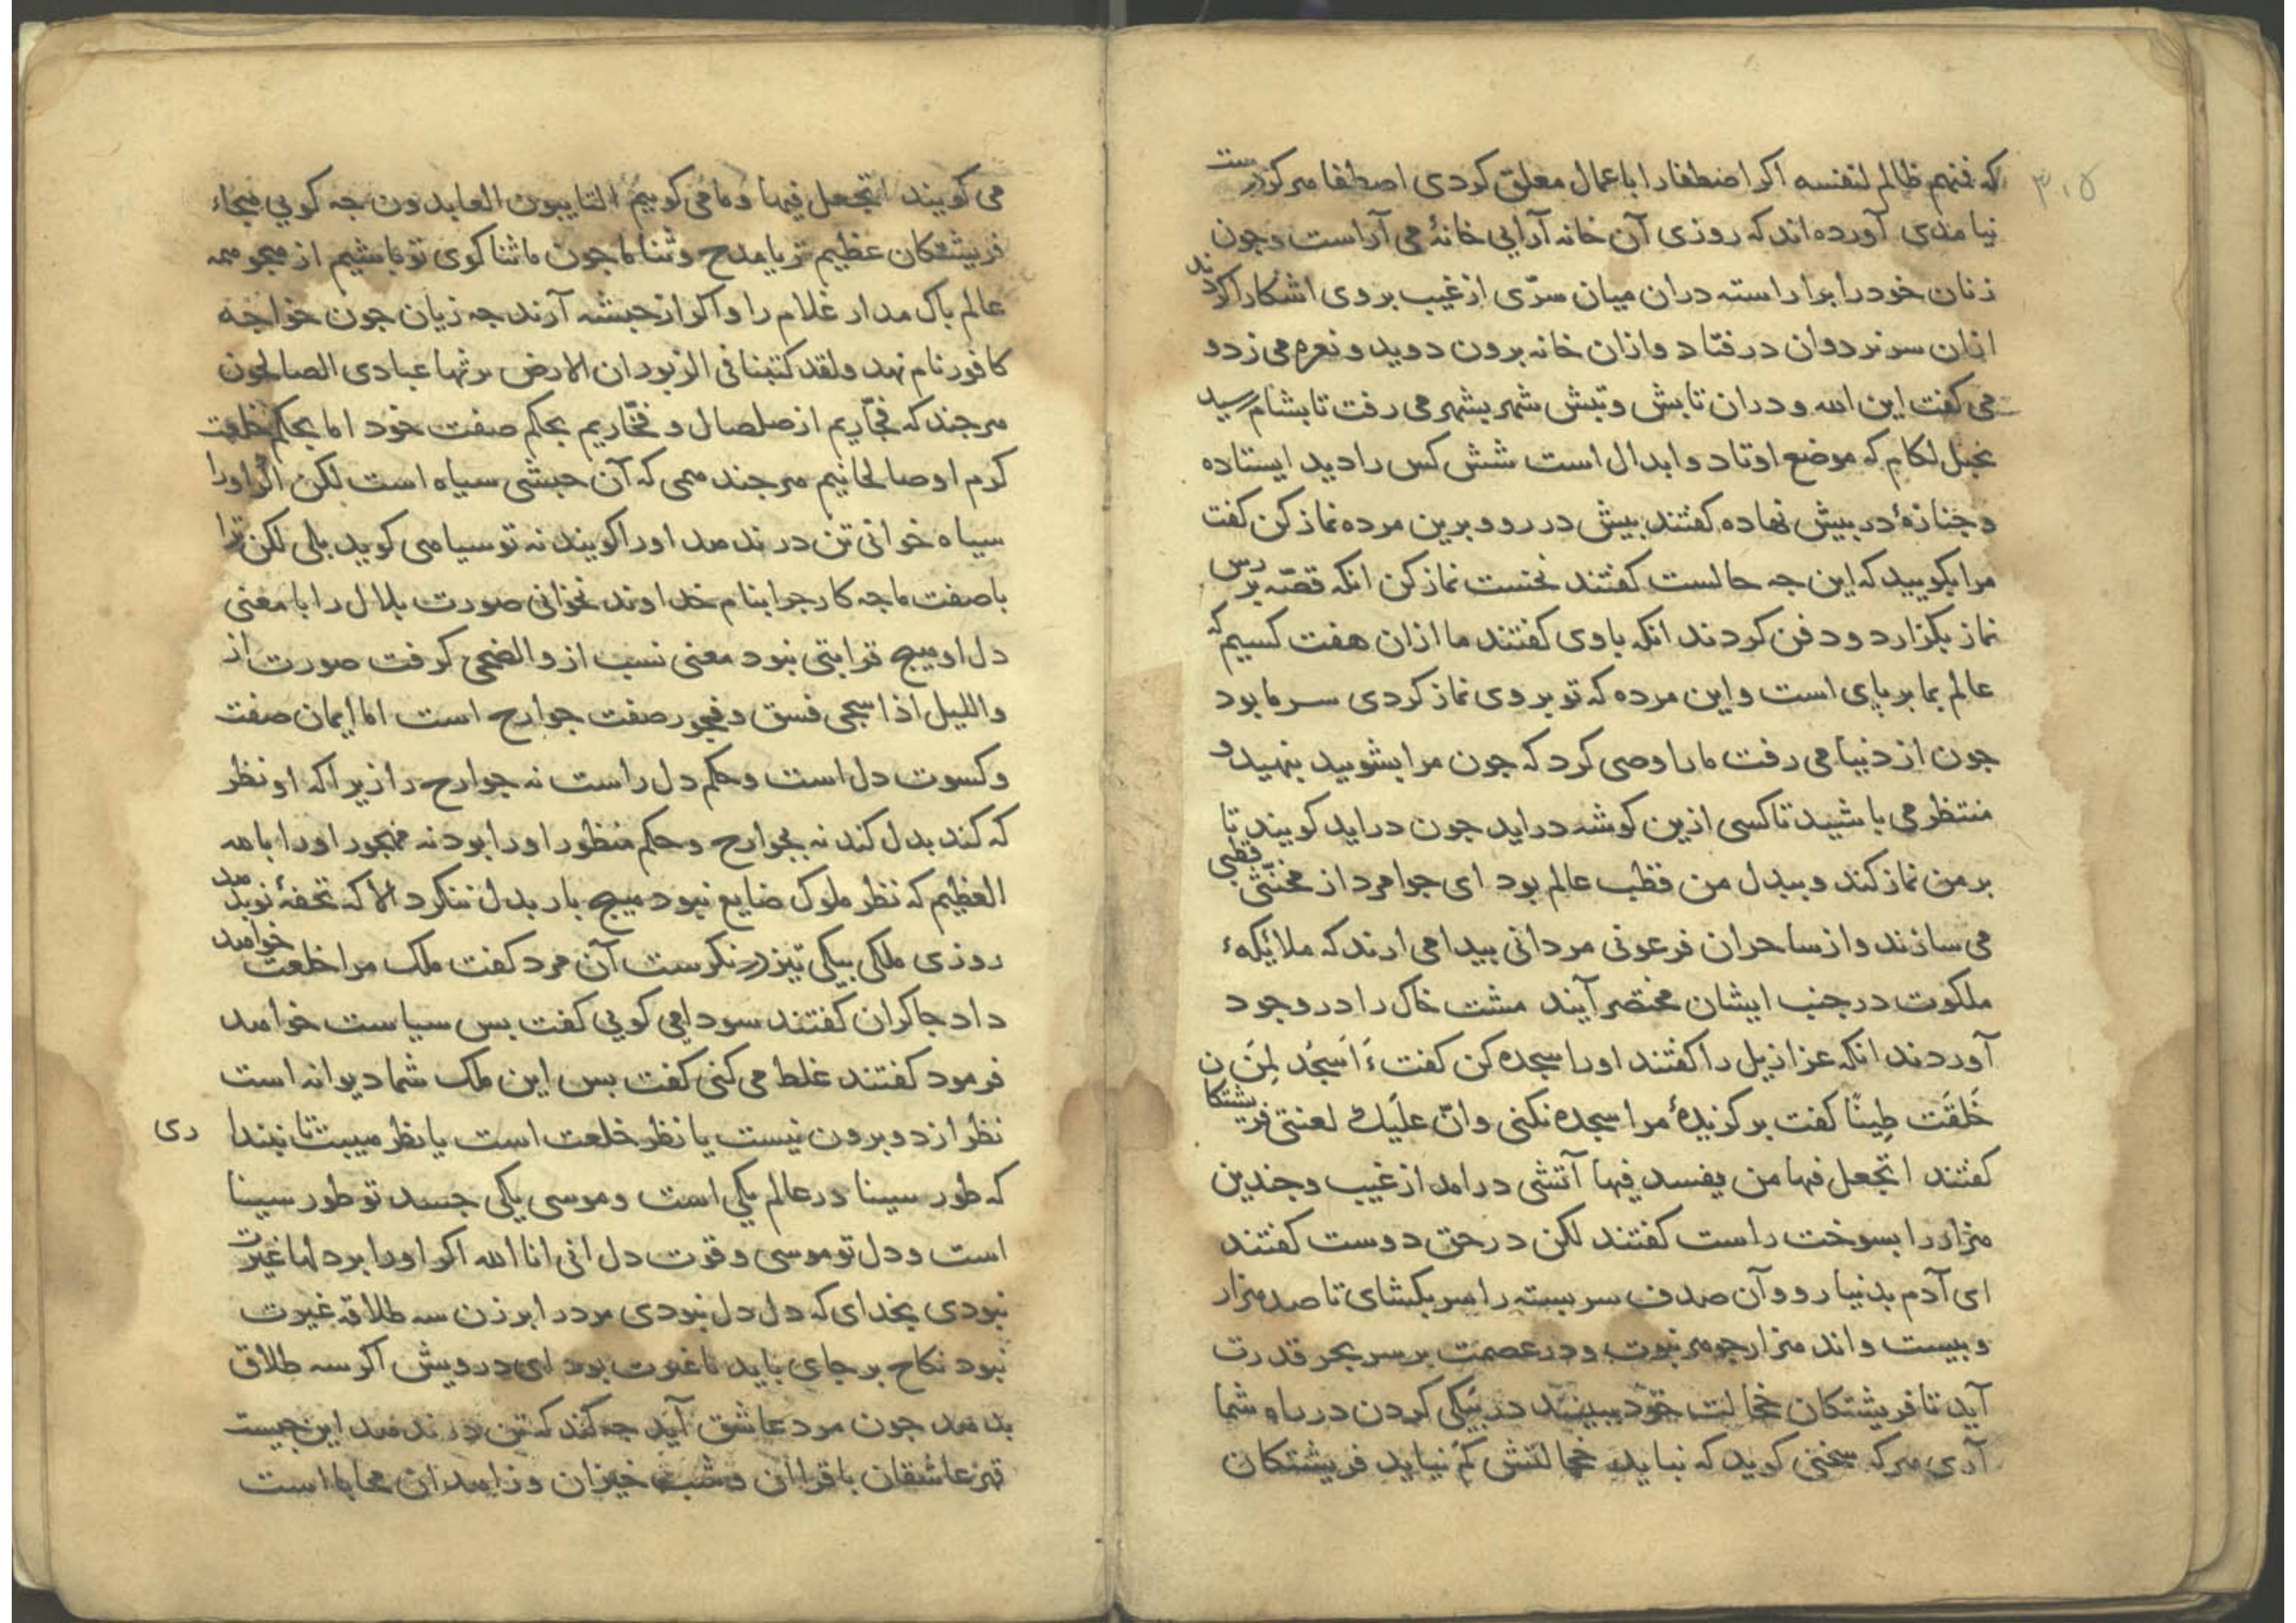 ٣٠٥
که فمنهم ظالم لنفسه اکر اصطفا را باعمال معلق کردی اصطفا هرکز درست
نیامدی آورده اند که روزی آن خانه آرایی خانهٔ می آراست و جون
زنان خود را براراسته دران میان سرّی از غیب بر وی اشکارا کردند
ازان سر نردوان درفتاد و ازان خانه برون دوید و نعره می زد و
می کفت این الله و دران تابش و تبش شهر بشهر می رفت تا بشام رسید
بجبل لکام که موضع اوتاد و ابدال است شش کس را دید ایستاده
و جنازهٔ در بیش نهاده کفتند بیش در رو و برین مرده نماز کن کفت
مرا بکویید که این جه حالست کفتند نخست نماز کن انکه قصّه برس
نماز بکزارد و دفن کردند انکه با وی کفتند ما ازان هفت کسیم که
عالم بما بر پای است و این مرده که تو بر وی نماز کردی سر ما بود
جون از دنیا می رفت ما را وصی کرد که جون مرا بشویید بنهید و
منتظر می باشید تا کسی ازین کوشه دراید جون دراید کویند تا
بر من نماز کند و ببدل من قطب عالم بود ای جوامرد از مخنّثی قطبی
می سازند و از ساحران فرعونی مردانی بیدا می ارند که ملائکهٔ
ملکوت در جنب ایشان مختصر آیند مشت خاک را در وجود
آوردند انکه عزازیل را کفتند او را سجده کن کفت ءَاَسجُد لِمَن
خَلَقَت طِینًا کفت برکزیدهٔ مرا سجده نکنی وانّ علَیک لعنتی فریشتکان
کفتند اتجعل فیها من یفسد فیها آتشی درامد از غیب و جندین
هزار را بسوخت راست کفتند لکن در حق دوست کفتند
ای آدم بدنیا رو و آن صدف سربسته را سر بکشای تا صد هزار
و بیست و اند هزار جوهر نبوت و در عصمت بر سر بحر قدرت
آید تا فریشتکان خجالت خود ببینند در نیکی کردن در باه شما
آری هرکه سخنی کوید که نباید خجالتش کم نیاید فریشتکان
می کویند اتجعل فیها و ما می کوییم التایبون العابدون جه کویی هیجاء
فریشتکان عظیم تر یا مدح و ثنا ما جون ما ثنا کوی تو باشیم از هجو همه
عالم باک مدار غلام را و اکر از حبشه آرند جه زیان جون خواجه
کافور نام نهد ولقد کتبنا فی الزبور ان الارض یرثها عبادی الصالحون
هرجند که فجّاریم از صلصال و فخّاریم بحکم صفت خود اما بحکم خلعت
کرم او صالحانیم هرجند همی که آن حبشی سیاه است لکن اکر او را
سیاه خوانی تن در ندهد او را کویند نه تو سیاهی کوید بلی لکن ترا
با صفت ما جه کار جرا بنام خداوند نخوانی صورت بلال را با معنی
دل او هیج قرابتی نبود معنی نسب از والضحی کرفت صورت از
واللیل اذا سجی فسق و فجور صفت جوارح است اما ایمان صفت
و کسوت دل است و حکم دل راست نه جوارح را زیراکه او نظر
که کند بدل کند نه بجوارح و حکم منظور او را بود نه مهجور او را بامه
العظیم که نظر ملوک ضایع نبود هیج بار بدل ننکرد الا که تحفهٔ نو بدهد
روزی ملکی بیکی تیز در نکرست آن مرد کفت ملک مرا خلعت خواهد
داد جاکران کفتند سودا می کویی کفت بس سیاست خواهد
فرمود کفتند غلط می کنی کفت بس این ملک شما دیوانه است
نظر از دو برون نیست یا نظر خلعت است یا نظر هیبت تا نبنداری
که طور سینا در عالم یکی است و موسی یکی جسد تو طور سینا
است و دل تو موسی و قوت دل انی انا الله اکر او را بر دلها غیرت
نبودی بخدای که دل دل نبودی مرد را بر زن سه طلاقه غیرت
نبود نکاح بر جای باید تا غیرت بود ای درویش اکر سه طلاق
بدهد جون مرد عاشق آید جه کند که تن در ندهد این جیست
قهر عاشقان با قرایان و شب خیزان و زاهدان محابا است